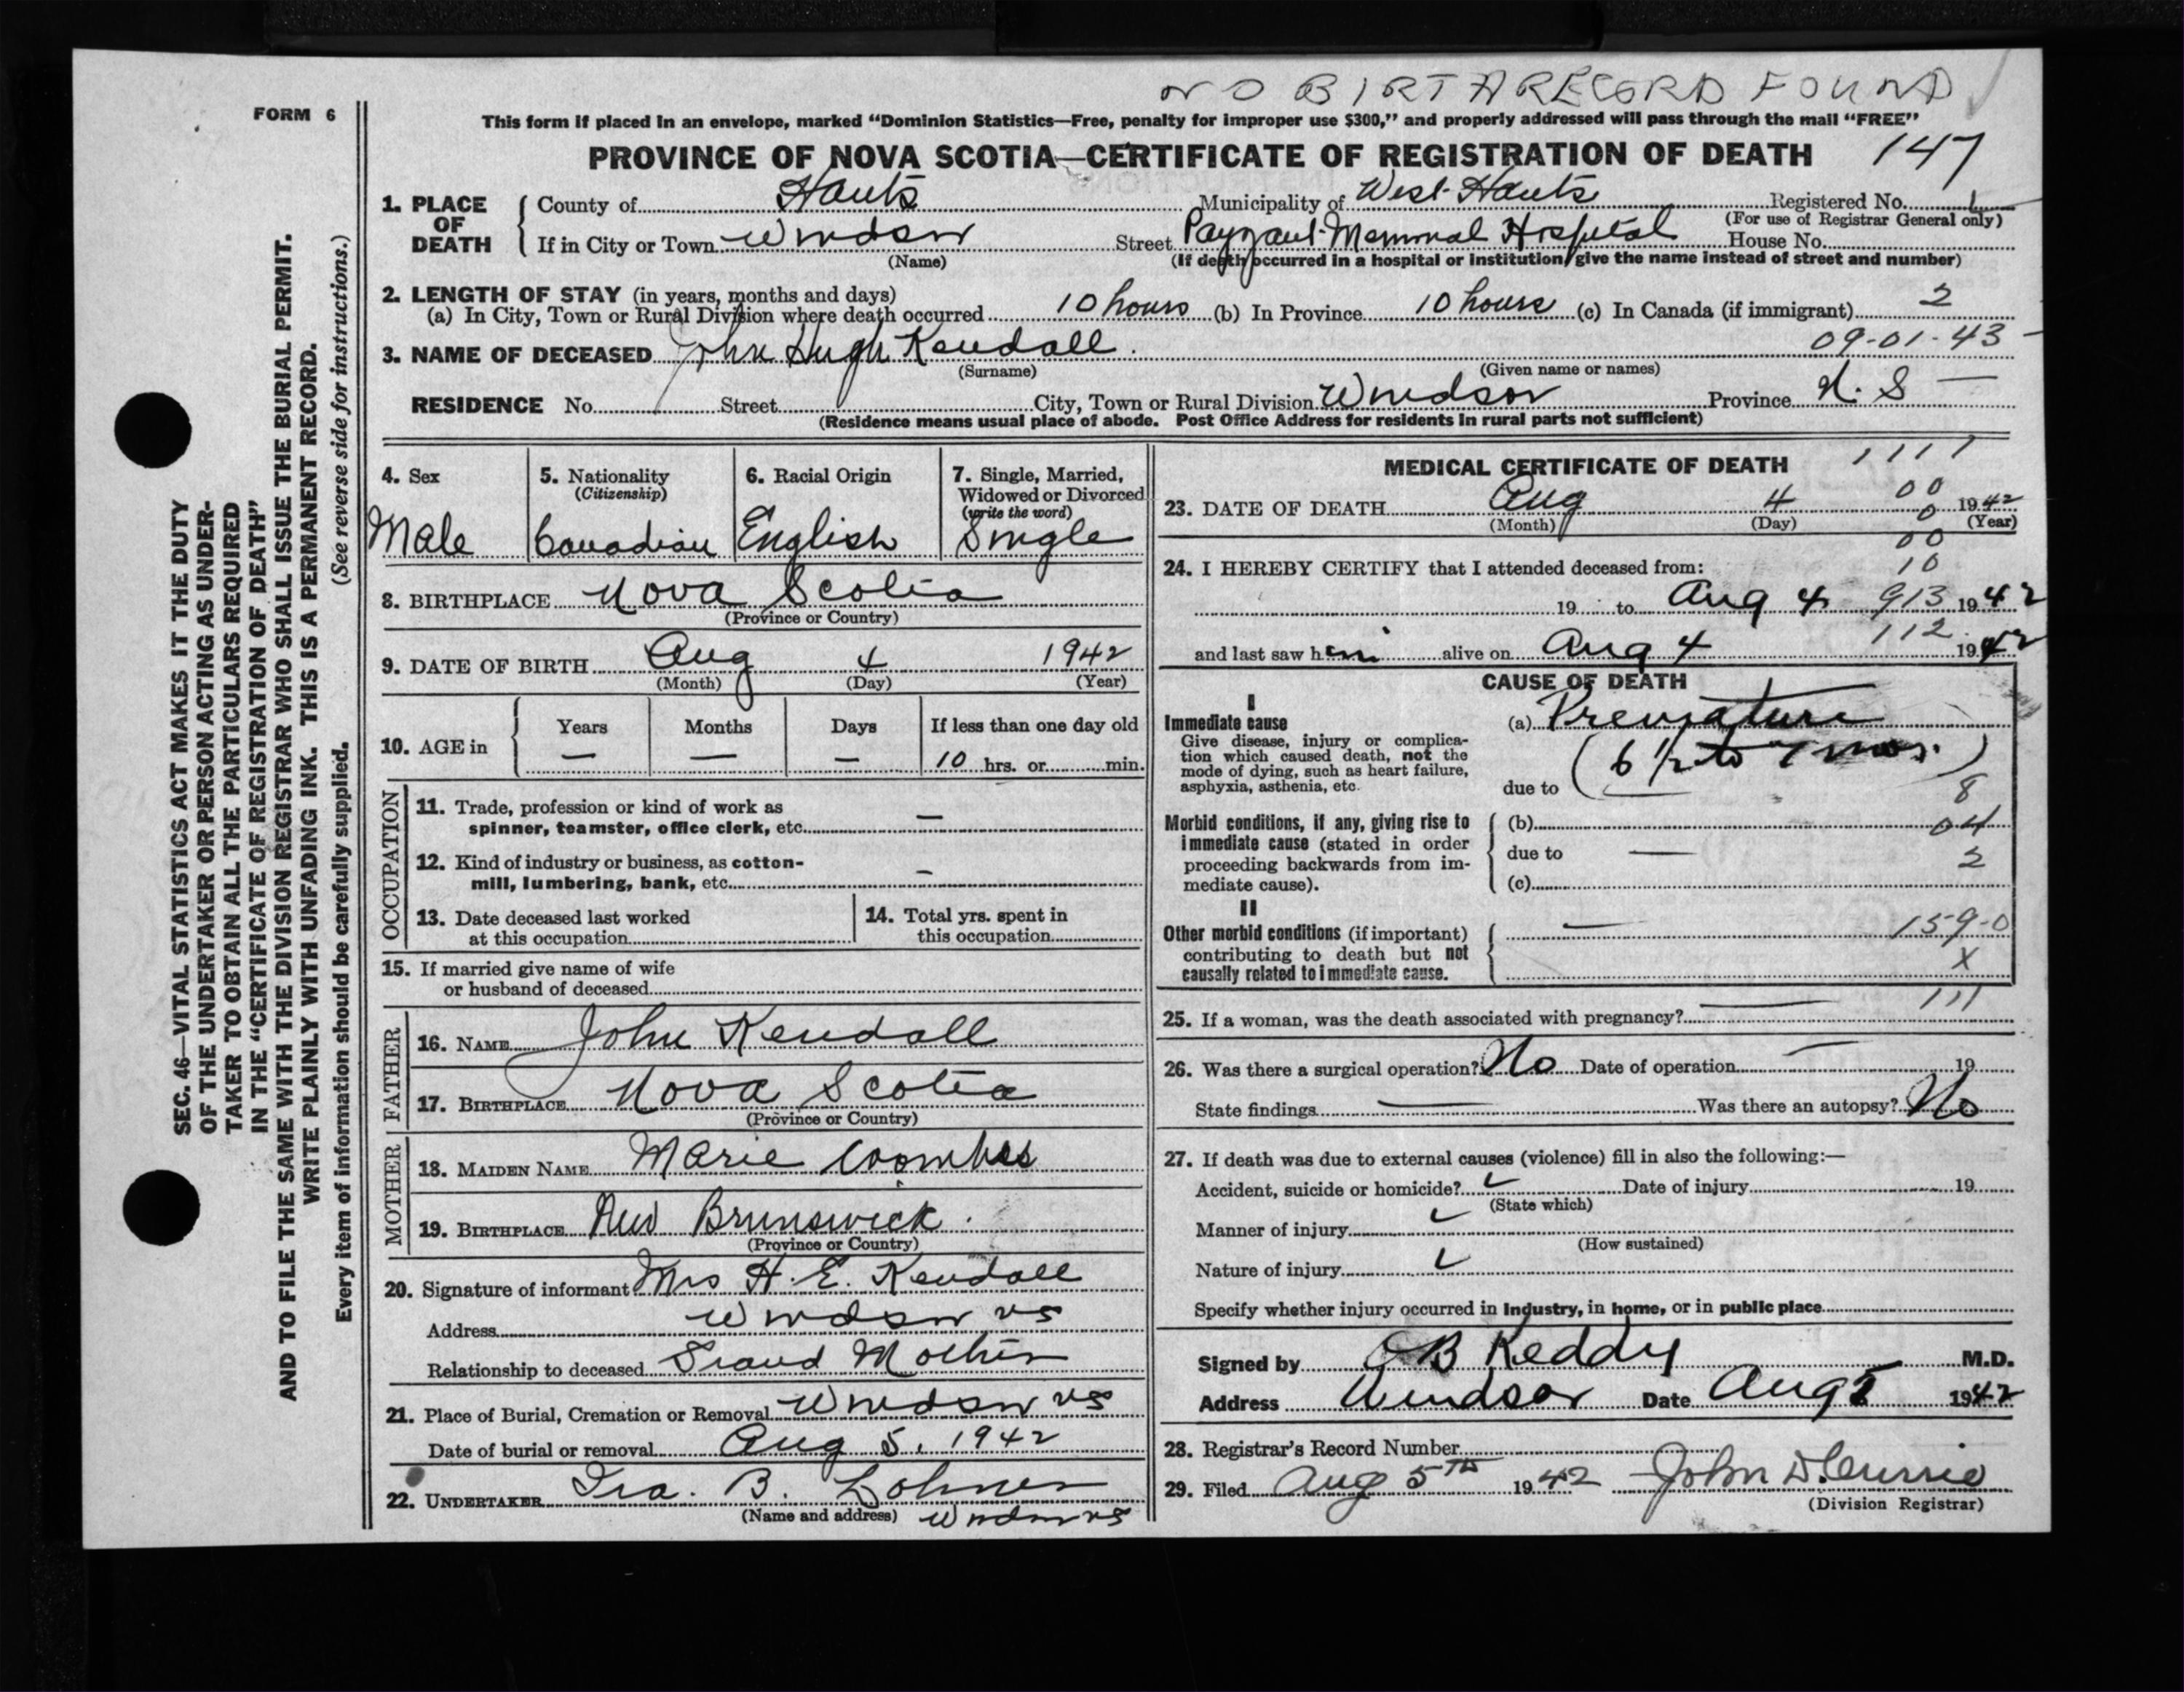 NO BIRTH RECORD FOUND
FORM 6
This form if placed in an envelope, marked “Dominion Statistics—Free, penalty for improper use $300,” and properly addressed will pass through the mail “FREE”
PROVINCE OF NOVA SCOTIA—CERTIFICATE OF REGISTRATION OF DEATH 147
1. PLACE OF DEATH
County of Hants Municipality of West Hants Registered No. 1
(For use of Registrar General only)
If in City or Town Windsor Street Payzant Memorial Hospital House No.
(Name) (If death occurred in a hospital or institution, give the name instead of street and number)
2. LENGTH OF STAY (in years, months and days)
(a) In City, Town or Rural Division where death occurred 10 hours (b) In Province 10 hours (c) In Canada (if immigrant) 2
3. NAME OF DECEASED John Hugh Kendall. 09-01-43-
(Surname) (Given name or names)
RESIDENCE No. Street City, Town or Rural Division Windsor Province N. S —
(Residence means usual place of abode. Post Office Address for residents in rural parts not sufficient)
4. Sex
Male
5. Nationality
(Citizenship)
Canadian
6. Racial Origin
English
7. Single, Married,
Widowed or Divorced
(write the word)
Single
8. BIRTHPLACE Nova Scotia
(Province or Country)
9. DATE OF BIRTH Aug 4 1942
(Month) (Day) (Year)
10. AGE in
Years Months Days If less than one day old
— — — 10 hrs. or min.
OCCUPATION
11. Trade, profession or kind of work as
spinner, teamster, office clerk, etc. —
12. Kind of industry or business, as cotton-
mill, lumbering, bank, etc. —
13. Date deceased last worked
at this occupation
14. Total yrs. spent in
this occupation
15. If married give name of wife
or husband of deceased
FATHER
16. NAME John Kendall
17. BIRTHPLACE Nova Scotia
(Province or Country)
MOTHER
18. MAIDEN NAME Marie Coombes
19. BIRTHPLACE New Brunswick.
(Province or Country)
20. Signature of informant Mrs H. E. Kendall
Address Windsor NS
Relationship to deceased Grand Mother
21. Place of Burial, Cremation or Removal Windsor NS
Date of burial or removal Aug 5, 1942
22. UNDERTAKER Ira. B. Lohnes
(Name and address) Windsor NS
MEDICAL CERTIFICATE OF DEATH 1111
23. DATE OF DEATH Aug 4 00 0 1942
(Month) (Day) (Year)
00
24. I HEREBY CERTIFY that I attended deceased from: 10
19 to Aug 4 913 1942
112
and last saw him alive on Aug 4 1942
CAUSE OF DEATH
I
Immediate cause
Give disease, injury or complica-
tion which caused death, not the
mode of dying, such as heart failure,
asphyxia, asthenia, etc.
(a) Premature
(6 1/2 to 7 mos.)
due to 8
Morbid conditions, if any, giving rise to
immediate cause (stated in order
proceeding backwards from im-
mediate cause).
(b) 04
due to — 2
(c)
II
Other morbid conditions (if important)
contributing to death but not
causally related to immediate cause.
— 159-0
X
111
25. If a woman, was the death associated with pregnancy? —
26. Was there a surgical operation? No Date of operation — 19
State findings — Was there an autopsy? No
27. If death was due to external causes (violence) fill in also the following:—
Accident, suicide or homicide? Date of injury 19
(State which)
Manner of injury
(How sustained)
Nature of injury
Specify whether injury occurred in Industry, in home, or in public place
Signed by B Keddy M.D.
Address Windsor Date Aug 5 1942
28. Registrar's Record Number
29. Filed Aug 5TH 1942 John D. Currie
(Division Registrar)
SEC. 46—VITAL STATISTICS ACT MAKES IT THE DUTY
OF THE UNDERTAKER OR PERSON ACTING AS UNDER-
TAKER TO OBTAIN ALL THE PARTICULARS REQUIRED
IN THE “CERTIFICATE OF REGISTRATION OF DEATH”
AND TO FILE THE SAME WITH THE DIVISION REGISTRAR WHO SHALL ISSUE THE BURIAL PERMIT.
WRITE PLAINLY WITH UNFADING INK. THIS IS A PERMANENT RECORD.
Every item of information should be carefully supplied. (See reverse side for instructions.)